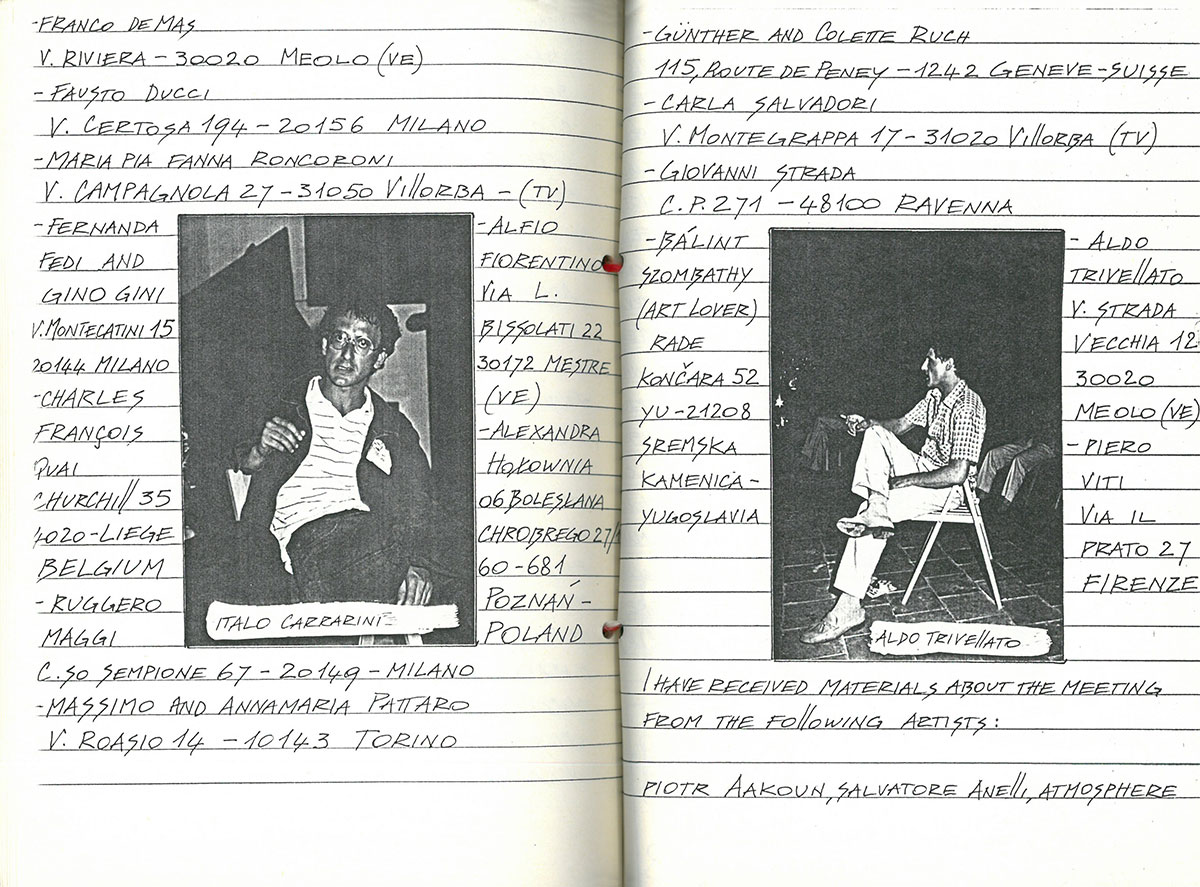 -FRANCO DE MAS
V. RIVIERA - 30020 MEOLO (VE)
- FAUSTO DUCCI
V. CERTOSA 194 - 20156 MILANO
-MARIA PIA FANNA RONCORONI
V. CAMPAGNOLA 27 - 31050 VIllORBA - (TV)
-FERNANDA
FEDI AND
GINO GINI
V. MONTECATINI 15
20144 MILANO
-CHARLES
FRANÇOIS
QUAI
CHURCHIll 35
4020-LIEGE
BELGIUM
-RUGGERO
MAGGI
ITALO CARRARINI
-ALFIO
FIORENTINO
VIA L.
BISSOLATI 22
30172 MESTRE
(VE)
-ALEXANDRA
HOŁOWNIA
OS BOLESLANA
CHROBREGO 27/
60-681
POZNAŃ -
POLAND
C.SO SEMPIONE 67 - 20149 - MILANO
-MASSIMO AND ANNAMARIA PATTARO
V. ROASIO 14 - 10143 TORINO
-GÜNTHER AND COLETTE RUCH
115, ROUTE DE PENEY - 1242 GENEVE-SUISSE
-CARLA SALVADORI
V. MONTEGRAPPA 17 - 31020 VIllORBA (TV)
-GIOVANNI STRADA
C.P. 271 - 48100 RAVENNA
-BÁLINT
SZOMBATHY
(ART LOVER)
RADE
KONČARA 52
YU-21208
SREMSKA
KAMENICA -
YUGOSLAVIA
ALDO TRIVEllATO
- ALDO
TRIVEllATO
V. STRADA
VECCHIA 12
30020
MEOLO (VE)
- PIERO
VITI
VIA IL
PRATO 27
FIRENZE
I HAVE RECEIVED MATERIALS ABOUT THE MEETING
FROM THE FOllOWING ARTISTS:
PIOTR AAKOUN, SALVATORE ANEllI, ATMOSPHERE